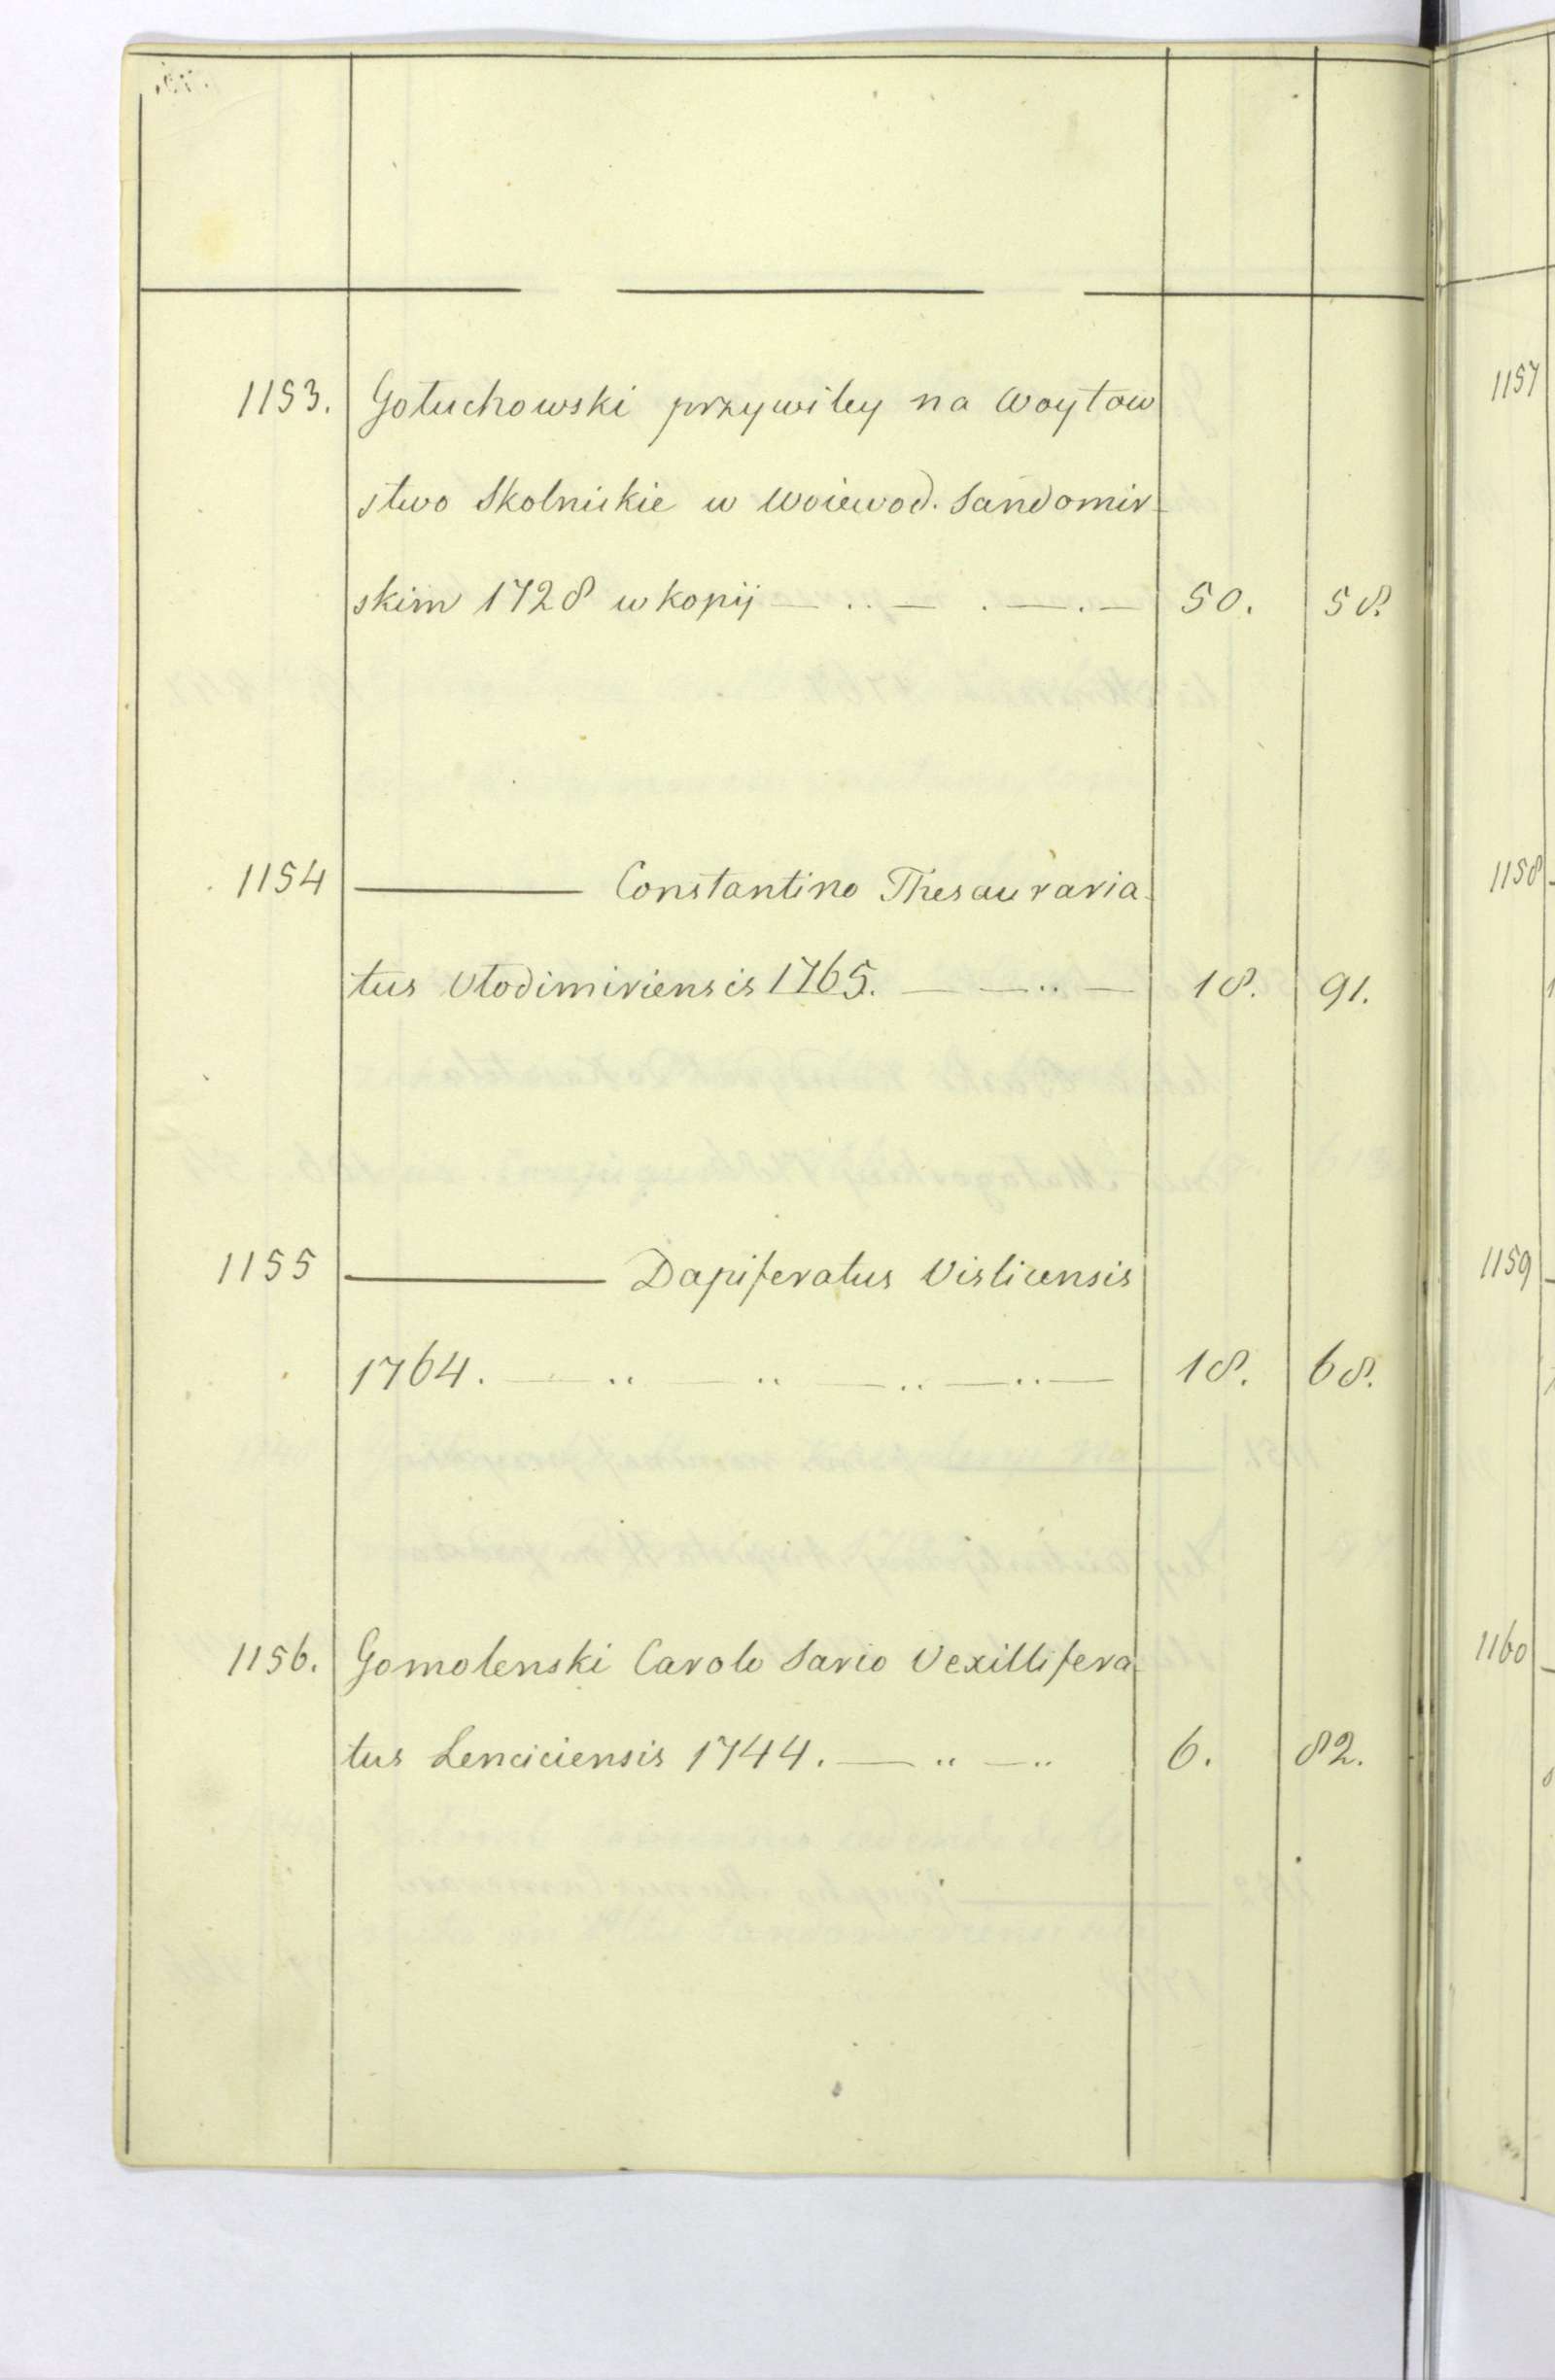 1153. Gołuchowski przywiley na Woytow
stwo Skolnickie w Woiewod. Sandomir-
skim 1728 w kopij — .. — . — . — 50. 58.
1154 ——— Constantino Thesauraria-
tus Vlodimiriensis 1765. — — .. — 18. 91.
1155 ——— Dapiferatus Visliciensis
1764. — .. — .. — .. — .. — 18. 68.
1156. Gomolenski Carolo Sario Vexillifera-
tus Lenciciensis 1744. — .. — .. 6. 82.
1157
1158
1159
1160